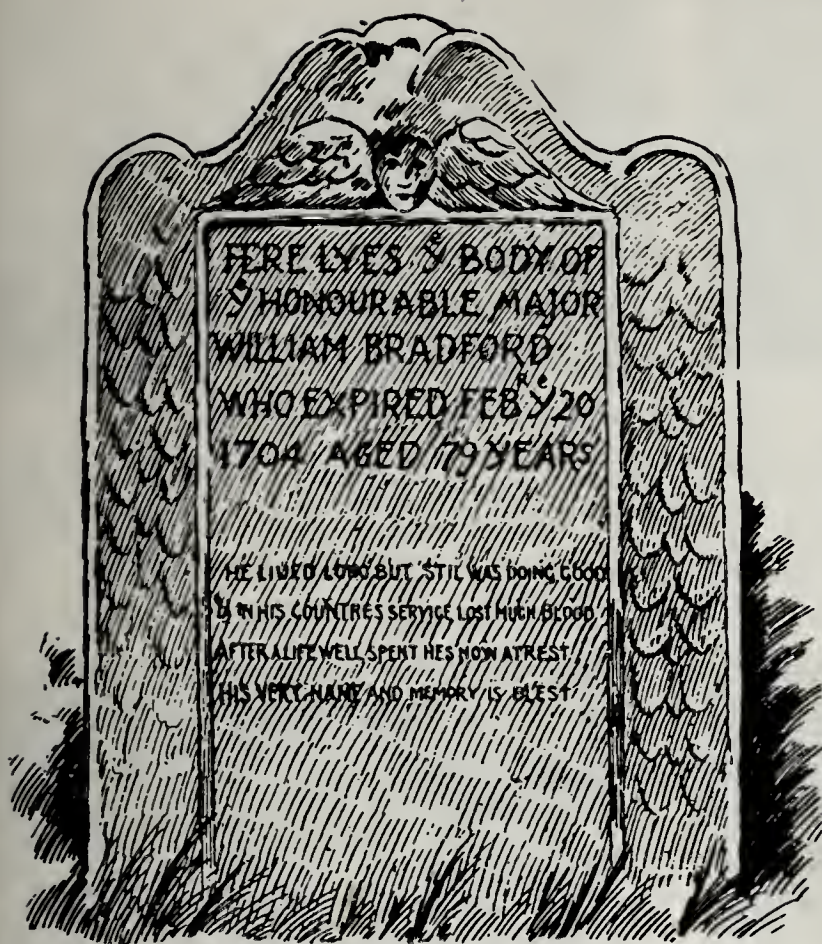 HERE LYES Yᵉ BODY OF
Yᵉ HONOURABLE MAJOR
WILLIAM BRADFORD
WHO EXPIRED FEBᴿ Yᵉ 20
1704 AGED 79 YEARS
HE LIVED LONG BUT STIL WAS DOING GOOD
& IN HIS COUNTRES SERVICE LOST MUCH BLOOD
AFTER A LIFE WELL SPENT HES NOW AT REST
HIS VERY NAME AND MEMORY IS BLEST